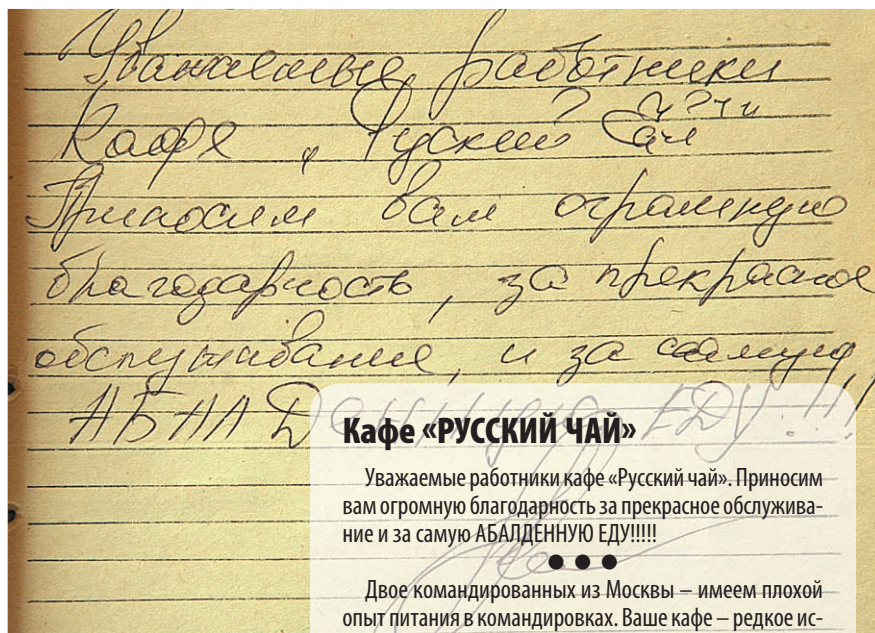 Уважаемые работники
Кафе „Руский Чай"
Приносим вам огромную
благодарность, за прекрасное
обслуживание, и за самую
АБАЛДЕННУЮ ЕДУ!!!
Кафе «РУССКИЙ ЧАЙ»
Уважаемые работники кафе «Русский чай». Приносим
вам огромную благодарность за прекрасное обслужива-
ние и за самую АБАЛДЕННУЮ ЕДУ!!!!!
● ● ●
Двое командированных из Москвы – имеем плохой
опыт питания в командировках. Ваше кафе – редкое ис-